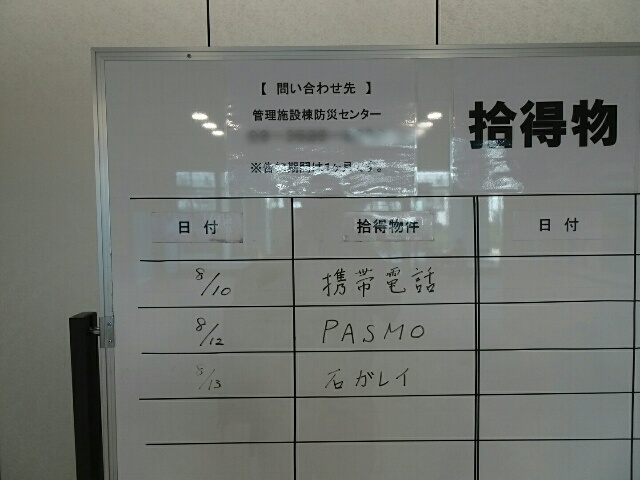 【 問い合わせ先 】
管理施設棟防災センター
※告知期間は1ヶ月です。
拾得物
日付 拾得物件 日付
8/10 携帯電話
8/12 PASMO
8/13 石がレイ